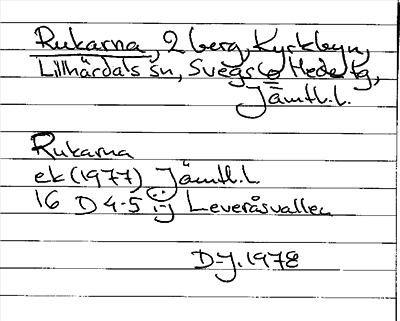 Rukarna, 2 berg, Kyrkbyn,
Lillhärdals sn, Svegs o Hede tg,
Jämtl.l.
Rukarna
ek (1977) Jämtl.l.
16 D 4-5 i-j Leveråsvallen
D-J. 1978